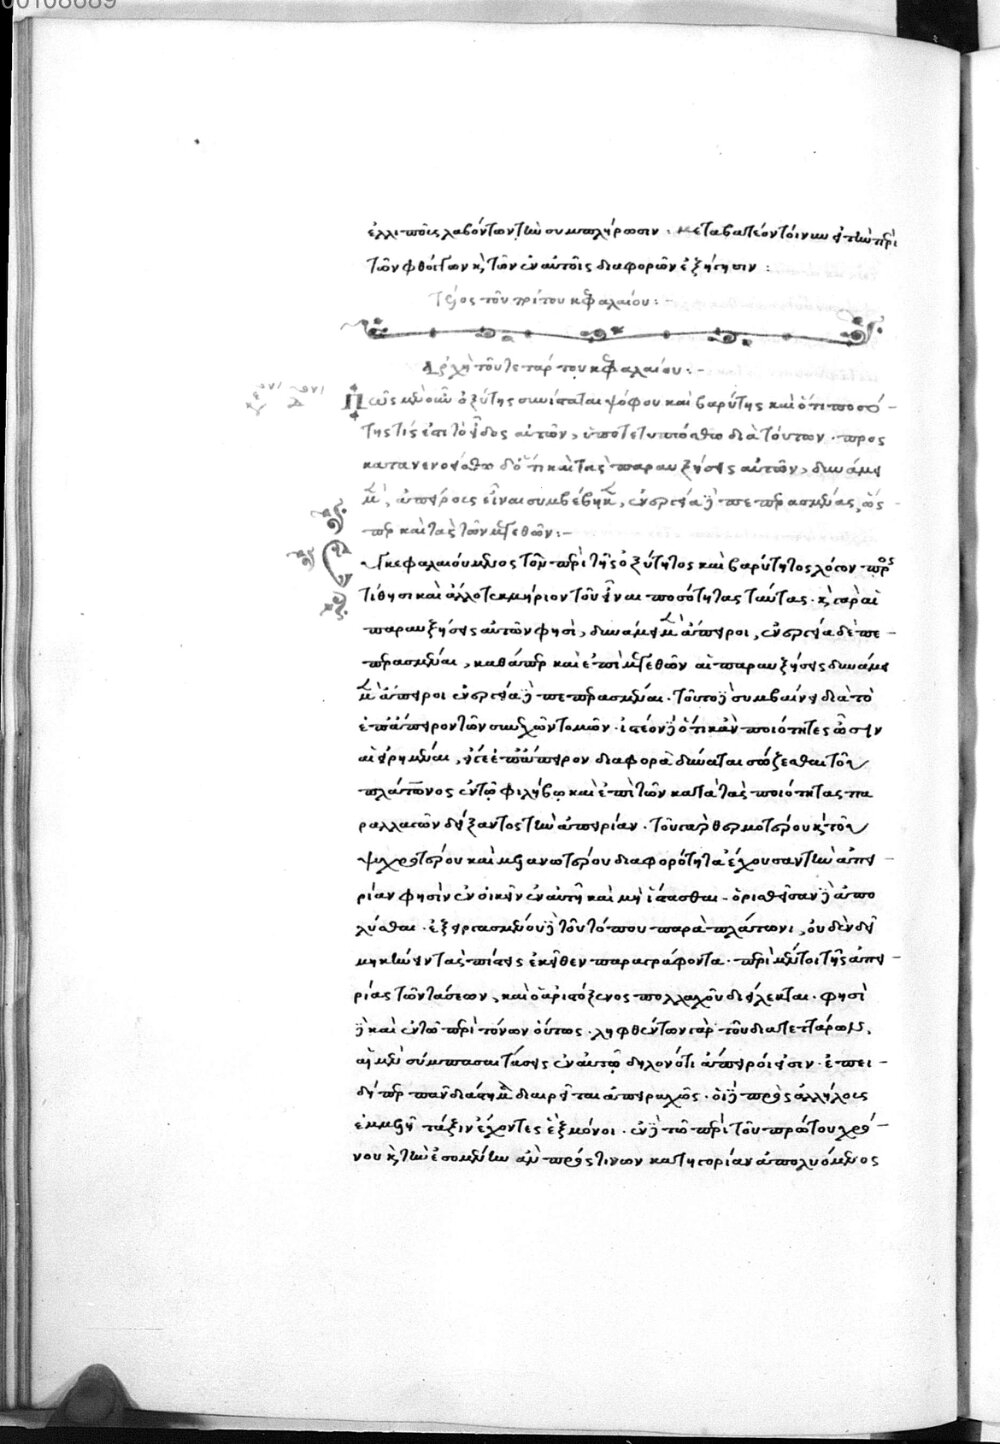 00108689
ἐλλιποῖς λαβόντων τὴν συμπλήρωσιν· μεταβατέον τοίνυν ἐπὶ τὴν περὶ
τῶν φθόγγων κ τῶν ἐν αὐτοῖς διαφορῶν ἐξήγησιν :
Τέλος τοῦ τρίτου κεφαλαίου : -
Ἀρχὴ τοῦ τετάρτου κεφαλαίου : -
Πῶς μὲν οὖν ὀξύτης συνίσταται ψόφου καὶ βαρύτης καὶ ὅτι ποσό-
της τίς ἐστι τὸ εἶδος αὐτῶν, ὑποτετυπώσθω διὰ τούτων· προσ
κατανενοήσθω δ' ὅτι καὶ τὰς παραυξήσεις αὐτῶν, δυνάμει
μὲν, ἀπείρους εἶναι συμβέβηκεν, ἐνεργείᾳ δὲ πεπερασμένας, ὥσ-
περ καὶ τὰς τῶν μεγεθῶν : -
Συγκεφαλαιούμενος τὸν περὶ τῆς ὀξύτητος καὶ βαρύτητος λόγον προς
τίθησι καὶ ἄλλο τεκμήριον τοῦ εἶναι ποσότητας ταύτας· κ γὰρ αἱ
παραυξήσεις αὐτῶν φησὶ, δυνάμει μὲν ἄπειροι, ἐνεργείᾳ δὲ πε-
περασμέναι, καθάπερ καὶ ἐπὶ μεγεθῶν αἱ παραυξήσεις δυνάμει
μὲν ἄπειροι ἐνεργείᾳ δὲ πεπερασμέναι· τοῦτο δὲ συμβαίνει διὰ τὸ
ἐπ' ἄπειρον τῶν συνεχῶν τομῶν· ἰστέον δὲ ὅτι κἂν ποιότητες ὦσιν
αἱ εἰρημέναι, ἡ ἐπ' ἄπειρον διαφορὰ δύναται σώζεσθαι τοῦ
πλάτωνος ἐν τῷ φιλήβῳ καὶ ἐπὶ τῶν κατὰ τὰς ποιότητας πα
ραλλαγῶν δείξαντος τὴν ἀπειρίαν· τοῦ γὰρ θερμοτέρου κ τοῦ
ψυχροτέρου καὶ μανωτέρου διαφορότητα ἔχουσαν τὴν ἀπει-
ρίαν φησὶν ἐνοικεῖν ἐν αὐτῇ καὶ μὴ ἵστασθαι· ὁρισθεῖσαν δὲ ἀπο
λύσθαι· ἐξειργασμένου δὲ τοῦ τόπου παρὰ πλάτωνι, οὐδὲν δεῖ
μηκύνειν τὰς πίστεις ἐκεῖθεν παραγράφοντα· περὶ μέντοι τῆς ἀπει-
ρίας τῶν τάσεων, καὶ ὁ ἀριστόξενος πολλαχοῦ διείλεκται· φησὶ
δὲ καὶ ἐν τῷ περὶ τόνων οὕτως· ληφθέντων γὰρ τοῦ διατεττάρων,
αἱ μὲν σύμπασαι τάσεις ἐν αὐτῷ δηλονότι ἄπειροί εἰσιν· ἐπει-
δήπερ πᾶν διάστημα διαιρεῖται ἀπειραχῶς· οἱ δὲ πρὸς ἀλλήλους
ἐμμελῆ τάξιν ἔχοντες ἓξ μόνοι· ἐν δὲ τῷ περὶ τοῦ πρώτου χρό-
νου κ τὴν ἐσομένην ἂν πρός τινων κατηγορίαν ἀπολυόμενος